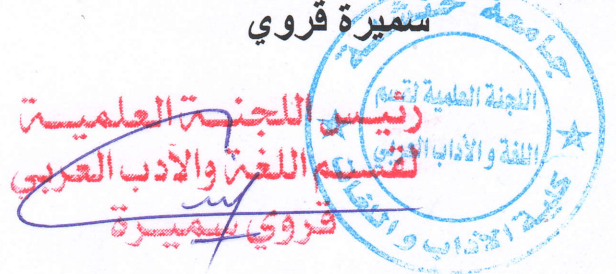 سميرة قروي
رئيس اللجنة العلمية
لقسم اللغة والأدب العربي
قروي سميرة
جامعة خنشلة
اللجنة العلمية لقسم
اللغة و الأداب العربي
كلية الآداب و اللغات